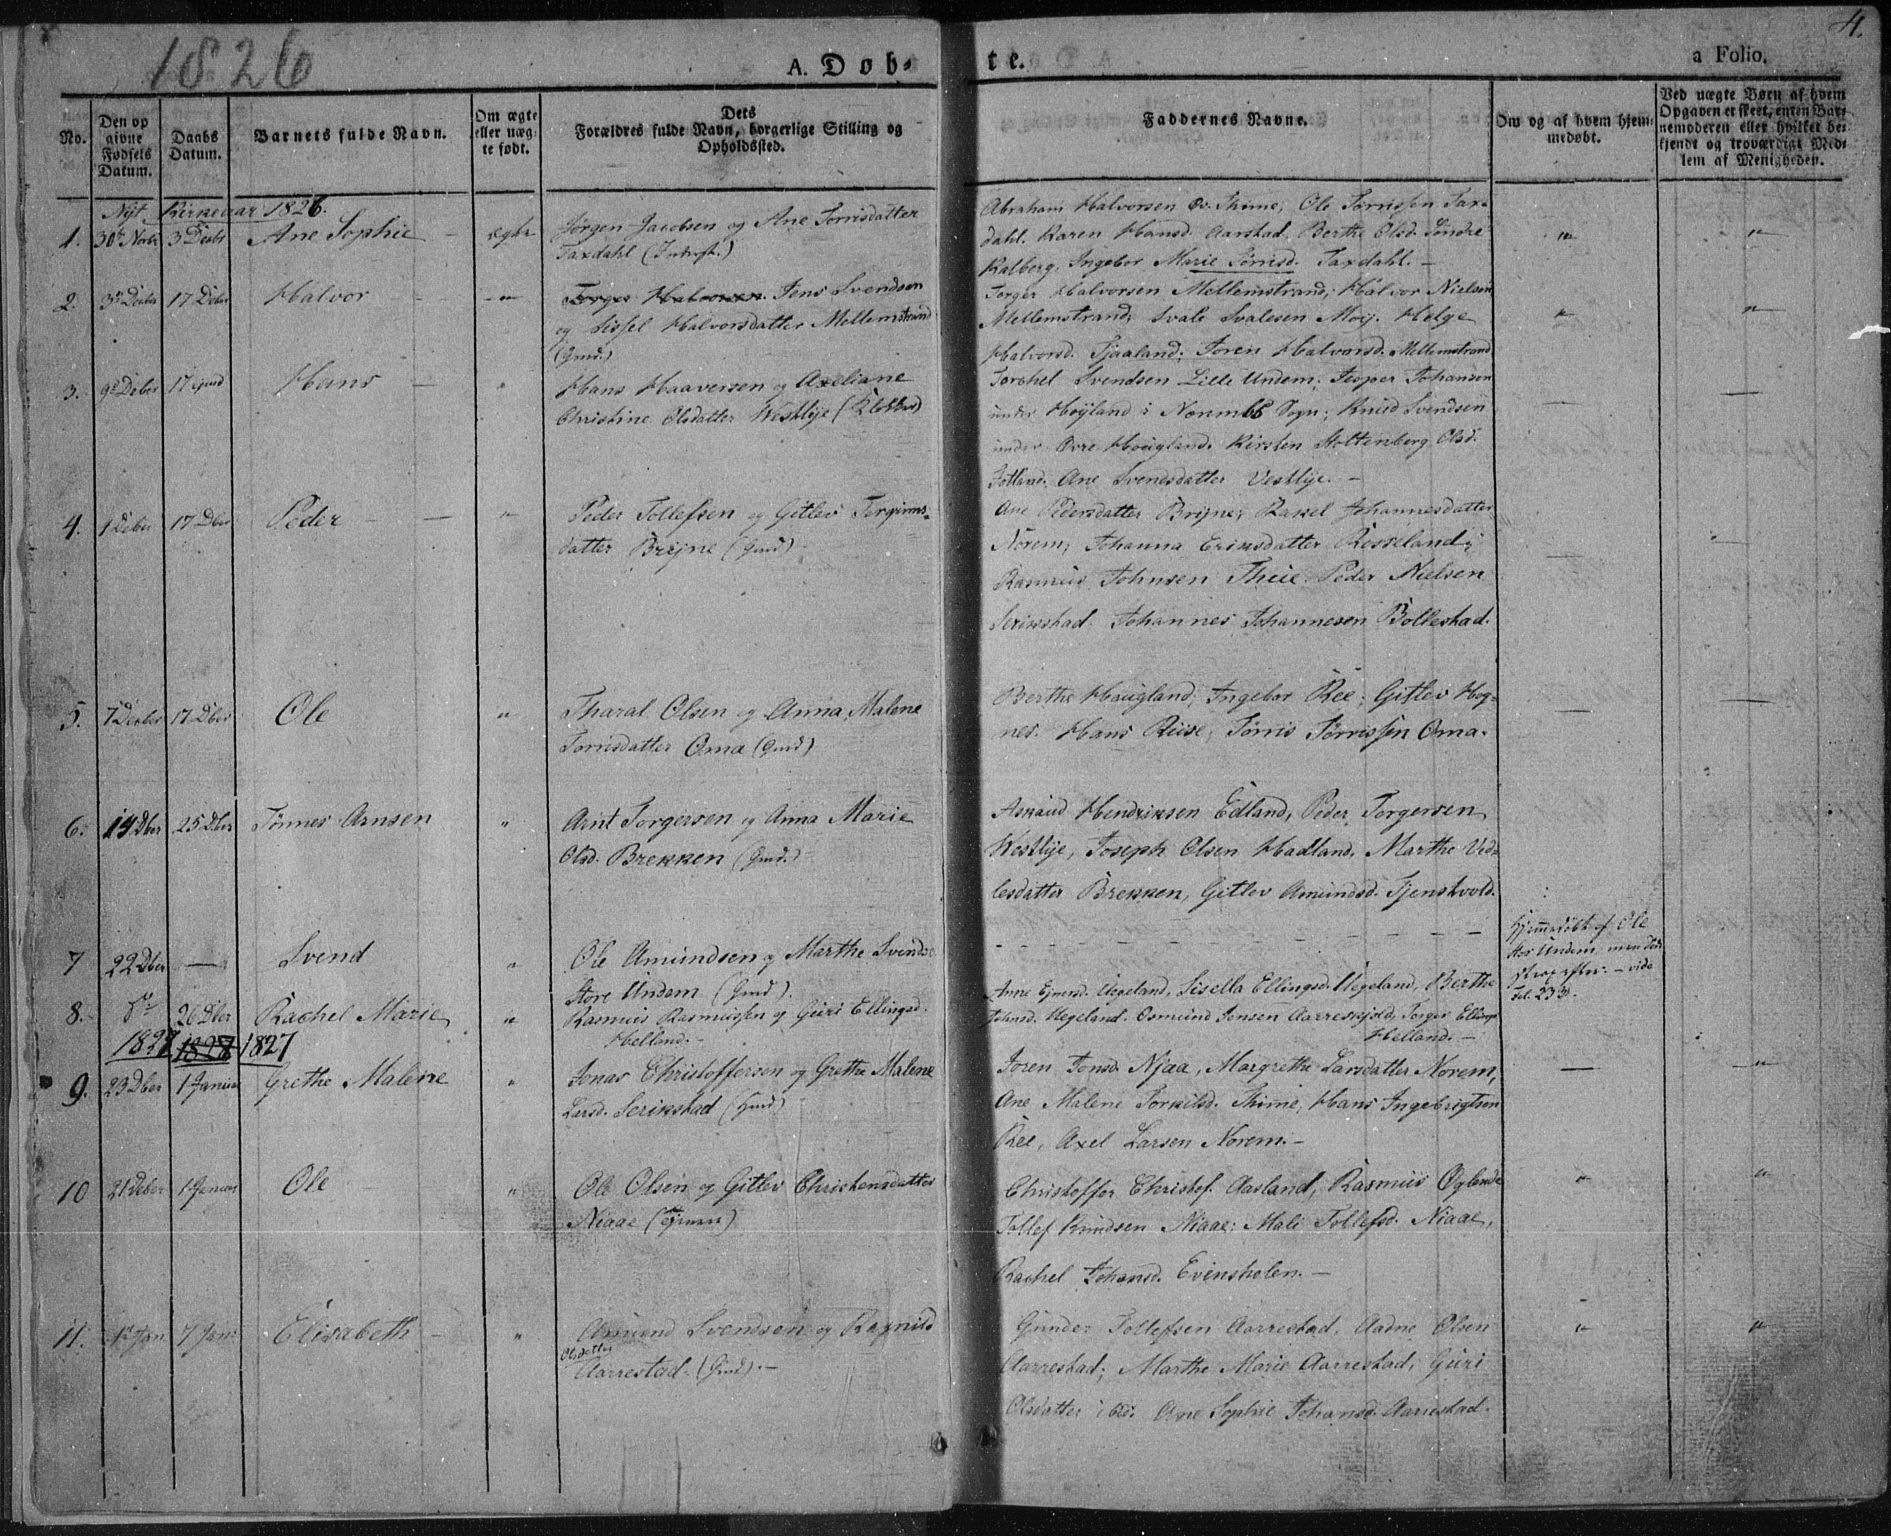 1826
4.
A. Døb-
te.
a Folio.
No.
Den op
givne
Fødsels
Datum.
Daabs
Datum.
Barnets fulde Navn.
Om ægte
eller uæg-
te født.
Dets
Forældres fulde Navn, borgerlige Stilling og
Opholdssted.
Faddernes Navne.
Om og af hvem hjem-
medøbt.
Ved uægte Børn af hvem
Opgaven er skeet, enten Bar-
nemoderen eller hvilket be-
kjendt og troværdigt Med-
lem af Menigheden.
Nyt Kirkeaar 1826.
1. 30te Novbr 3 Decbr Ane Sophie ægte
Jørgen Jacobsen og Ane Tørrisdatter
Taxdahl (Inderst.)
Abraham Halvorsen Øv. Thime; Ole Tørrissen Tax-
dahl. Karen Hansd. Aarstad. Berthe Olsd. Søndre
Kalberg. Ingebor Marie Tørrisd. Taxdahl. —
2. 3de Decbr 17 Decbr Halvor
Torger Halvorsen. Jens Svendsen
og Sissel Halvorsdatter Mellemstrand
(Gmd.)
Torger Halvorsen Mellemstrand; Halvor Nielsen
Mellemstrand; Svale Svalesen Moij. Helge
Halvorsd. Tjaaland; Toren Halvorsd. Mellemstrand
3. 9de Decber 17 ejusd Hans
Hans Haaversen og Axeliane
Christine Olsdatter Westlije (Klokker)
Torchel Svendsen Lille Undem; Jesper Johansen
under Høÿland i Nærmbs Sogn; Knud Svendsen
under Øvre Houigland. Kirsten Stoltenberg Olsd.
Jotland. Ane Svenesdatter Vestlije. —
4. 1 Decber 17 Dbr Peder
Peder Tollefsen og Gitlev Torgrims-
datter Brijne (Gmd)
Ane Pedersdatter Brijne; Rakel Johannesdatter
Norem; Johanna Eriksdatter Rosseland;
Rasmus Johnsen Theie. Peder Nielsen
Serikstad. Johannes Johannesen Bollestad.
5. 7 Decber 17 Dber Ole
Tharal Olsen og Anna Malene
Tørrisdatter Oma (Gmd)
Berthe Haugland; Ingebor Ree; Gitlev Hog-
nes. Hans Riise; Tørris Tørrissen Oma.
6. 14 Dber 25 Dber Tønnes Arnsen
Arnt Torgersen og Anna Marie
Olsd. Brekken (Gmd.)
Asnaud Hendriksen Edland, Peder Torgersen
Westlije, Joseph Olsen Hadland. Marthe Ved-
lesdatter Brekken, Gitlev Amundsd. Tjensvold.
7 22 Dber — Svend
Ole Amundsen og Marthe Svends.
Store Undem (Gmd).
Hjemmedøbt af Ole
Stor Undem, men døde
strax efter: — vide
Fol. 233.
8. do 26 Dber Rachel Marie
Rasmus Rasmussen og Guri Ellingsd.
Helland. —
Anne Ejnersd. Uegeland, Sisella Ellingsd. Uegeland, Berthe
Johnsd. Uegeland. Osmund Jonsen Aarreskjold. Torger Ellings.
Helland. —
1827 1828 1827
9. 23 Dber 1 Januar Grethe Malene
Jonas Christoffersen og Grethe Malene
Larsd. Serikstad (Gmd)
Toren Jonsd. Njaa, Margrethe Larsdatter Norem,
Ane Malene Torkilsd. Thime, Hans Ingebrigtsen
Ree, Axel Larsen Norem. —
10 21 Decber 1 Januar Ole
Ole Olsen og Gitlev Christensdatter
Niaae
Christoffer Christof. Aasland, Rasmus Øglende
Tollef Knudsen Niaae; Mali Tollefsd. Niaae,
Rachel Johansd. Evensholen. —
11. 1ste Jan 7 Jan Elisabeth
Amund Svendsen og Ragnild
Olsdatter
Aarrestad. (Gmd). —
Gunder Tollefsen Aarrestad. Aadne Olsen
Aarrestad; Marthe Marie Aarrestad; Guri
Olsdatter ibid. Ane Sophie Johansd. Aarrestad.